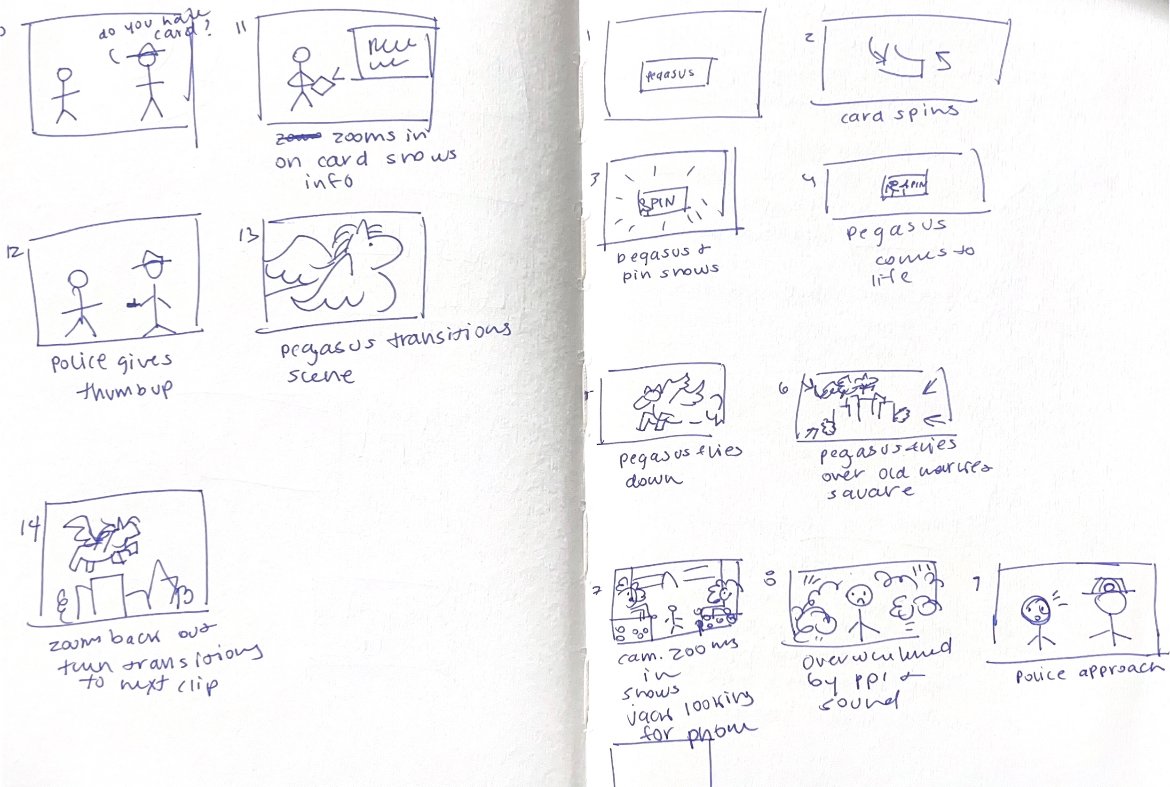 do you have
card?
11
zooms in
on card shows
info
12
police gives
thumbup
13
pegasus transitions
scene
14
zooms back out
then transitions
to next clip
1
Pegasus
2
card spins
3
PIN
pegasus &
pin shows
4
PIN
pegasus
comes to
life
pegasus flies
down
6
pegasus flies
over old market
square
7
cam. zooms
in
shows
jack looking
for phone
8
overwhelmed
by ppl &
sound
9
police approach